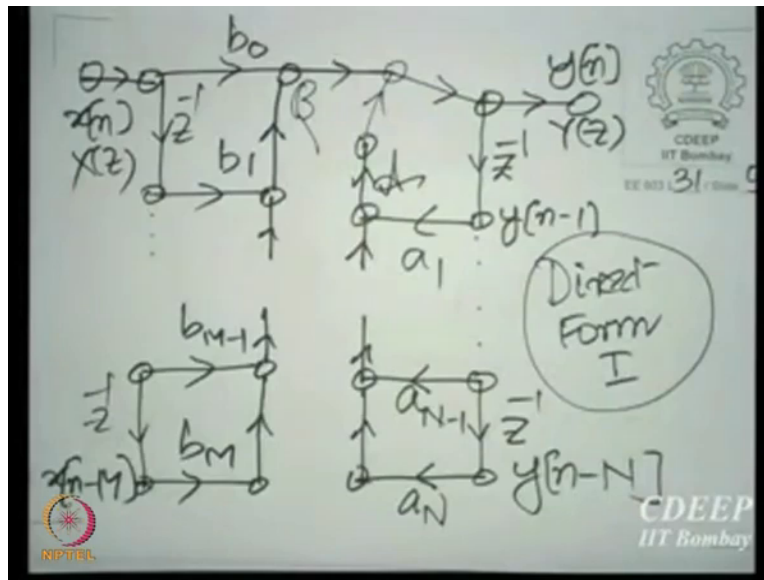 b₀
y[n]
x[n]
X(z)
z⁻¹
B
b₁
A
z⁻¹
Y(z)
y[n-1]
a₁
Direct
Form
I
b_{M-1}
z⁻¹
a_{N-1}
z⁻¹
x[n-M]
b_M
a_N
y[n-N]
CDEEP
IIT Bombay
EE 603 L 31 / Slide
NPTEL
CDEEP
IIT Bombay